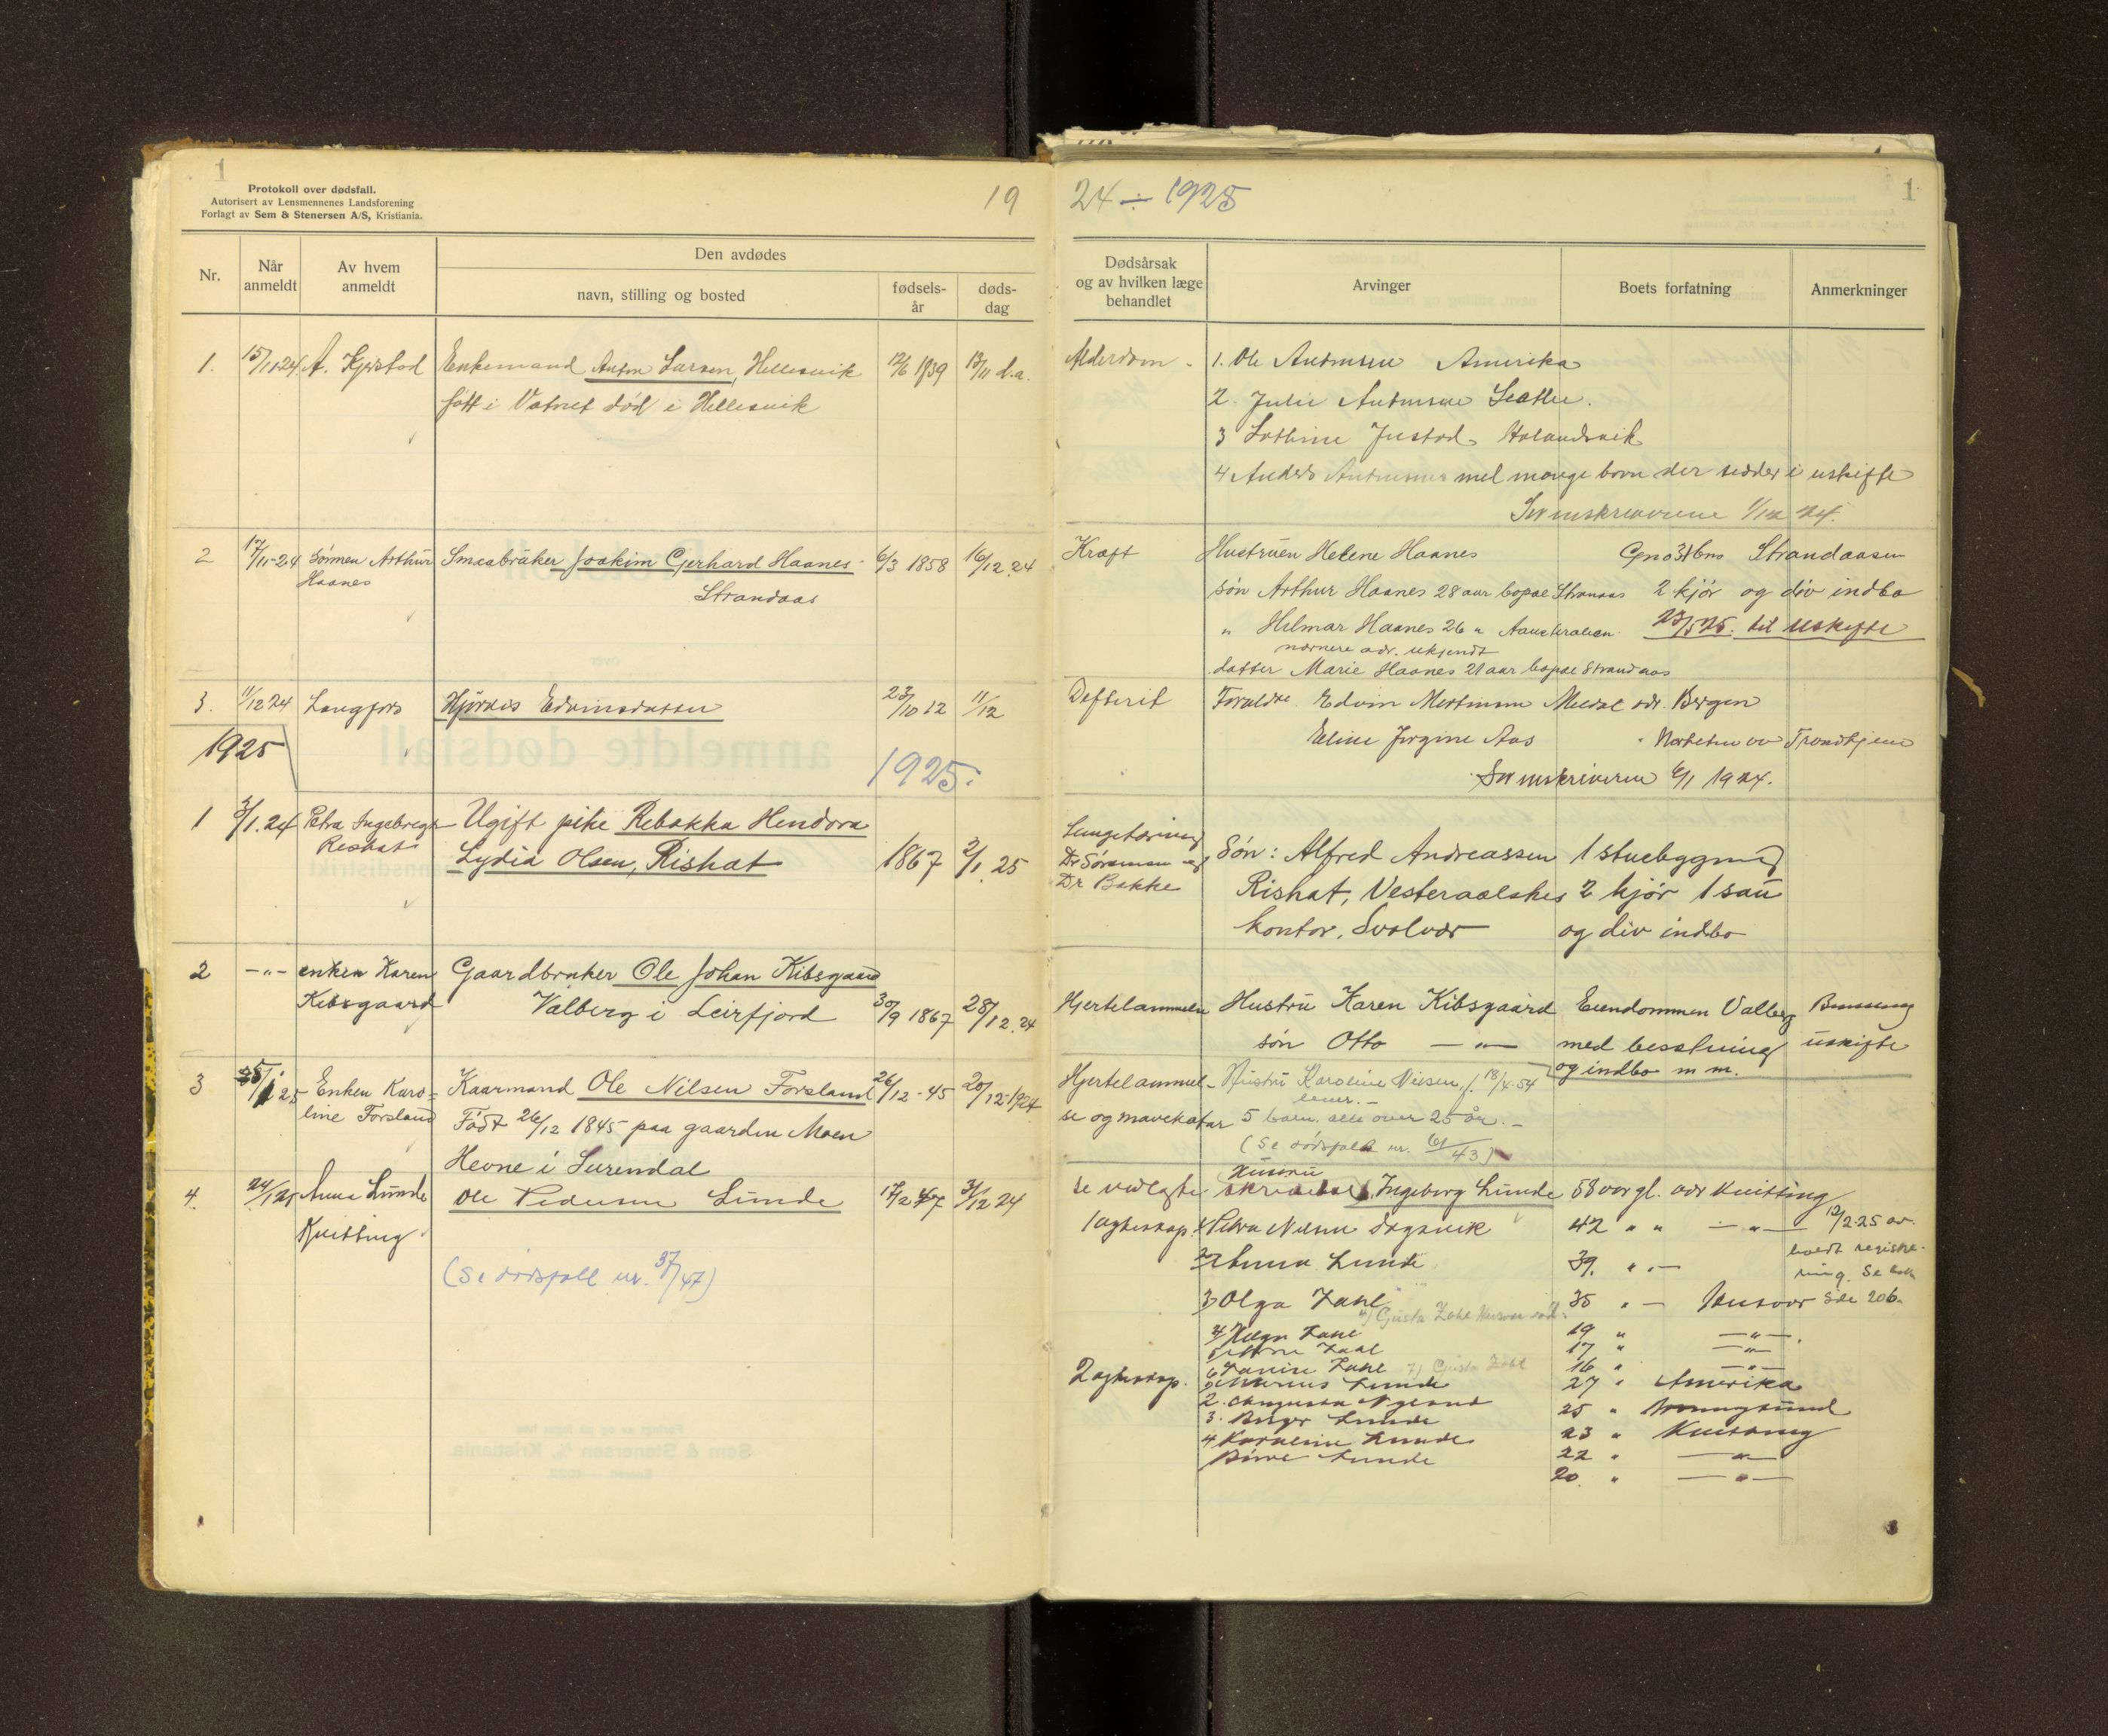 1
Protokoll over dødsfall.
Autorisert av Lensmennenes Landsforening
Forlagt av Sem & Stenersen A/S, Kristiania.
19
Nr.
Når anmeldt
Av hvem anmeldt
Den avdødes
navn, stilling og bosted
fødsels-år
døds-dag
1. 15/11-24. A. Kjerstad Enkemand Anton Larsen, Hellesvik 12/6 1839 13/11 d.a.
født i Vatnet død i Hellesvik
2 17/11-24 Sønnen Arthur Smaabruker Joakim Gerhard Haanes 6/3 1858 16/12 24
Haanes Strandaas
3. 11/12 24 Langfors Hjørdis Edvinsdatter 23/10 12 11/12
1925
1925.
1 3/1.24 Petra Ingebregts Ugift pike Rebakka Hendora
Rishat Lydia Olsen, Rishat 1867 2/1 25
2 -"- enken Karen Gaardbruker Ole Johan Kibsgaard
Kibsgaard Valberg i Leirfjord 30/9 1867 28/12.24
3 25 Enken Karo= Kaarmand Ole Nilsen Forsland 26/12-45 20/12-1924
line Forsland Født 26/12 1845 paa gaarden Moen
Hevne i Surendal
4. 24/1 25 Anna Lunde Ole Pedersen Lunde 17/2 47 31/12 24
Kvitting
(Se dødsfall nr. 37/47)
24 ÷ 1925
1
Dødsårsak og av hvilken læge behandlet
Arvinger
Boets forfatning
Anmerkninger
Alderdom - 1. Ole Antonsen Amerika
2. Julie Antonsen Seatle.
3 Justad Holandsvik
4 Anders Antonsens mel mange børn der sidder i uskifte
Sorenskriveren 1/12 24.
Kræft Hustruen Helene Haanes Gno 3 Bno Strandaasen
søn Arthur Haanes 28 aar bopæl Stranaas 2 kjør og div indbo
" Helmar Haanes 26 " Aaustralien 27/5 25. til uskifte
nærmere adr. ukjendt
datter Marie Haanes 21 aar bopæl Strandaas
Defterit Foreldre Edvin Mortinsen Meedal adr. Bergen
Eline Jørgine Aas Trondhjem
Sorenskriveren 6/1 1924.
Lungetæring
Dr Sørensen og Søn: Alfred Andreassen 1 stuebygning
Dr Bakke Rishat, Vesteraalskes 2 kjør 1 sau
kontor, Svolvær og div indbo
Hjertelammelse Hustru Karen Kibsgaard Eiendommen Valberg
søn Otto -"- med besetning uskifte
og indbo m m.
Hjertelammel- Hustru Karoline Nilsen, f. 18/4-54
lever.-
se og mavekatar 5 barn, alle over 25 år.-
(Se dødsfall nr. 61/43)
Hustru
Se vedlagte Ingeborg Lunde 58 aar gl. adr Kvitting
1 egteskap. 1 Petra Nilsen Dagsvik 42 " " -"- 12/2-25 av-
holdt registre-
2 Anna Lunde 39. " "- ring. Se bok
3 Olga Zahl 35 " - Husvær Side 206.
4 Helga Zahl 19 " -"-
17 " -"-
6 Zahl 16 " -"-
7) Gjusta Zahl
2 egteskap. 1 Marius Lunde 27 " Amerika
2. Augusta 25 "
3. Birger Lunde 23 " Kvitting
4 Karoline Lunde 22 " -"-
Lunde 20. " -"-